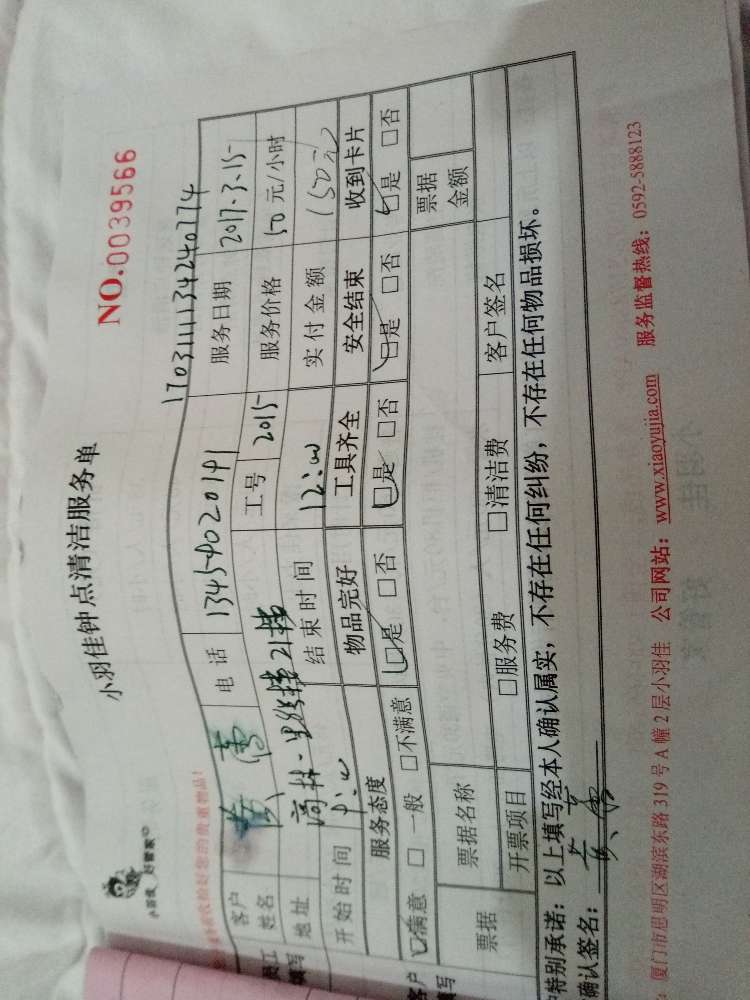 小羽佳钟点清洁服务单
NO.0039566
小羽佳 好管家
您的贵重物品!
1703111134240774
客户姓名 黄 电话 13454020191 服务日期 2017.3.15
地址 工号 2015 服务价格 50 元/小时
开始时间 结束时间 12:00 实付金额 150元
服务态度 物品完好 工具齐全 安全结束 收到卡片
☑满意 □一般 □不满意 ☑是 □否 ☑是 □否 ☑是 □否 ☑是 □否
票据 票据名称 票据金额
开票项目 □服务费 □清洁费 客户签名
特别承诺:以上填写经本人确认属实,不存在任何纠纷,不存在任何物品损坏。
确认签名:黄
厦门市思明区湖滨东路 319 号 A 幢 2 层小羽佳 公司网站:www.xiaoyujia.com 服务监督热线:0592-5888123